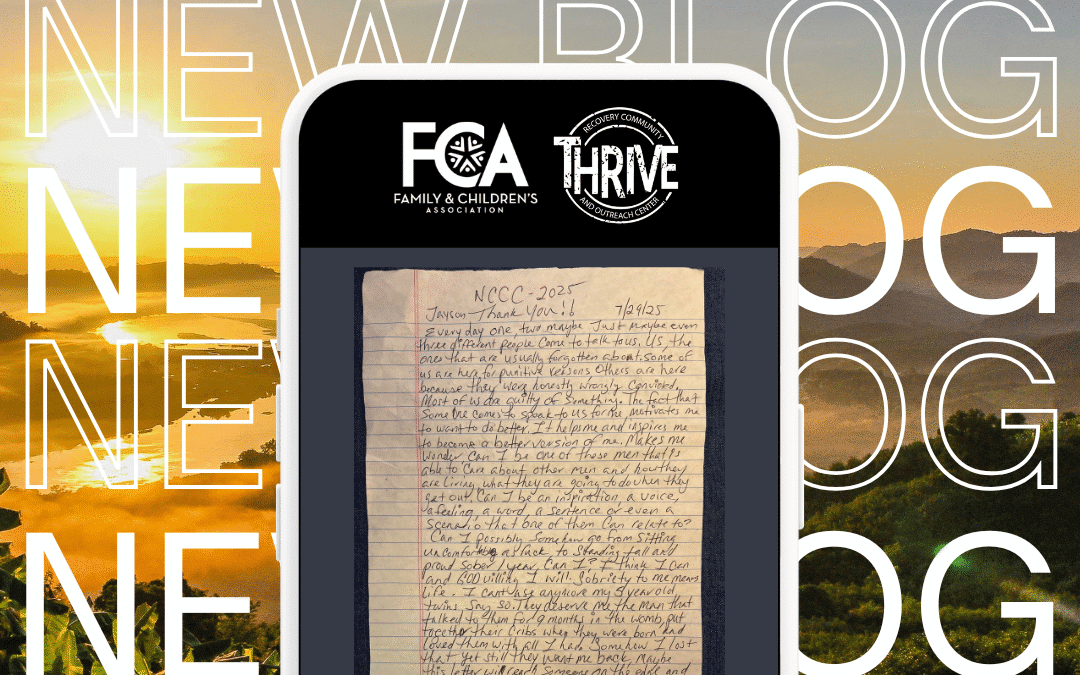 NEW BLOG
NEW BLOG
NEW BLOG
NEW BLOG
FCA
FAMILY & CHILDREN'S
ASSOCIATION
RECOVERY COMMUNITY
THRIVE
AND OUTREACH CENTER
NCCC-2025
Jayson Thank You!! 7/29/25
Everyday one, two maybe Just maybe even
three different people come to talk to us. Us, the
ones that are usually forgotten about. Some of
us are here for punitive reasons. Others are here
because they were honestly wrongly convicted.
Most of us are guilty of something. The fact that
Someone comes to speak to us for me, motivates me
to want to do better. It helps me and inspires me
to become a better version of me. Makes me
wonder, Can I be one of those men that is
able to care about other men and how they
are living, what they are going to do when they
get out. Can I be an inspiration, a voice,
a feeling, a word, a sentence or even a
scenario that one of them can relate to?
Can I possibly somehow go from sitting
uncomfortably as fuck to standing tall and
proud sober 1 year, Can I? I think I can
and GOD willing I will. Sobriety to me means
life. I cant use anymore my year old
twins say so. They deserve me the man that
talked to them for 9 months in the womb, put
together their cribs when they were born and
loved them with all I had. Somehow I lost
that yet still they want me back. Maybe
this letter will reach someone on the edge and